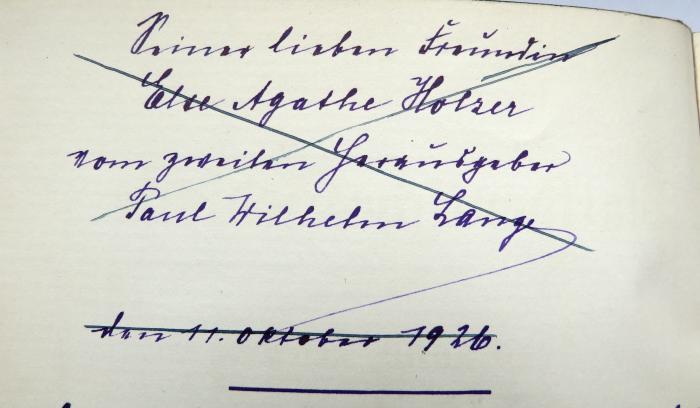 Seiner lieben Freundin
Else Agathe Holzer
vom zweiten Herausgeber
Paul Wilhelm Lange
den 11. Oktober 1926.